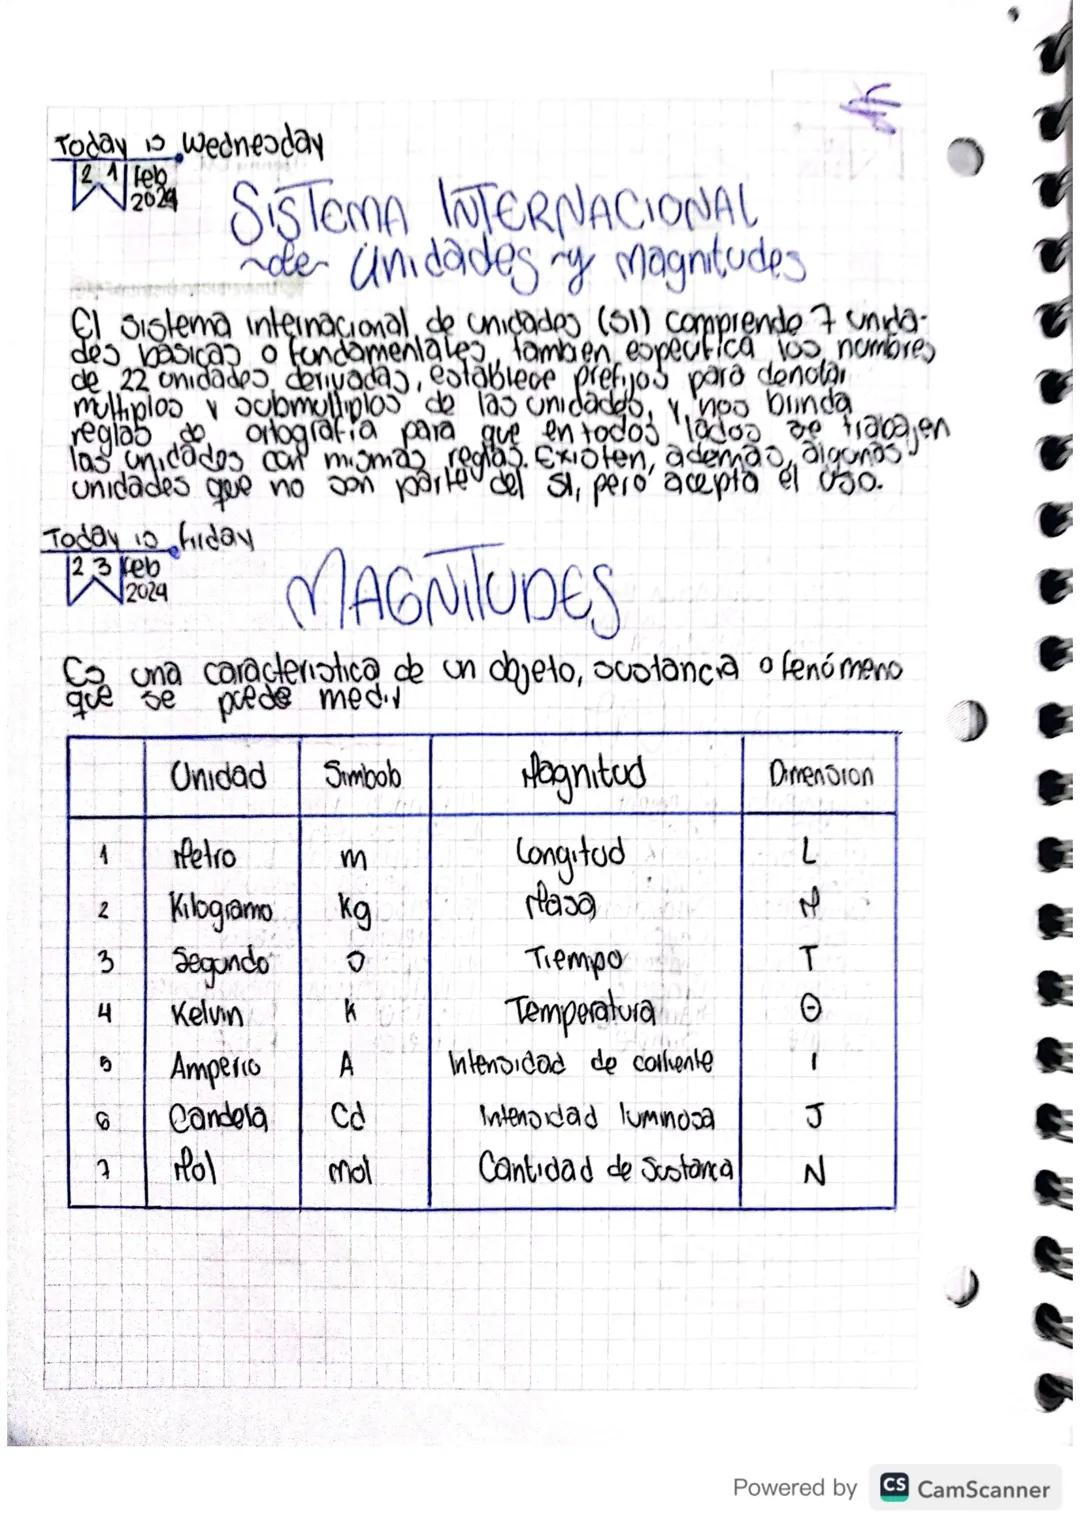 Today is Wednesday
21 Feb
2024
SISTEMA INTERNACIONAL
de Unidades y Magnitudes
El sistema internacional de unidades (SI) comprende 7 unida-
des basicas o fundamentales, tambien especifica los nombres
de 22 unidades derivadas, establece prefijos para denotar
multiplos y submultiplos de las unidades, y nos brinda
reglas de ortografia para que en todos lados se trabajen
las unidades con mismas reglas. Existen, además, algunas
unidades que no son parte del SI, pero acepta el uso.
Today is friday
23 Feb
2024
MAGNITUDES
Es una caracteristica de un objeto, sustancia o fenómeno
que se puede medir
Unidad Simbolo Magnitud Dimension
1 Metro m Longitud L
2 Kilogramo kg Masa M
3 Segundo s Tiempo T
4 Kelvin K Temperatura Θ
5 Amperio A Intensidad de corriente I
6 Candela Cd Intensidad luminosa J
7 Mol mol Cantidad de Sustanca N
Powered by CS CamScanner